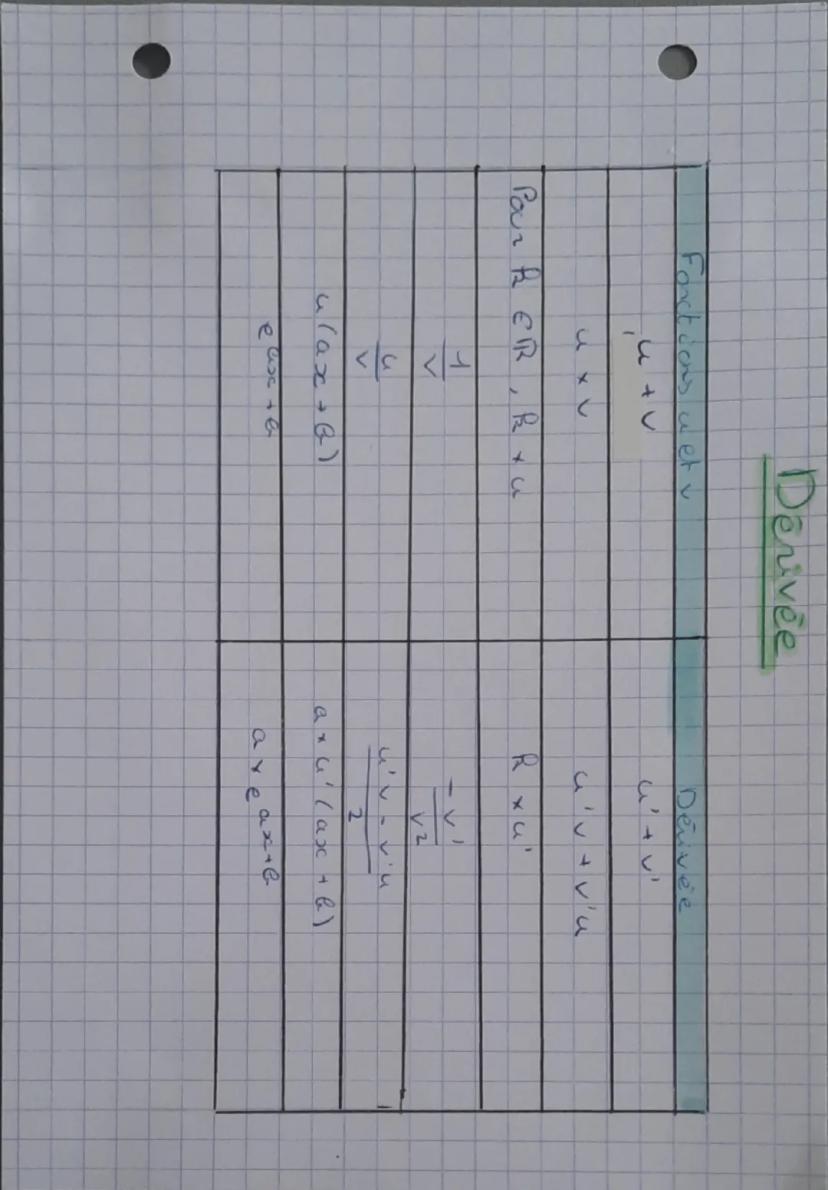 Dérivée
Fonctions u et v | Dérivée
u + v | u' + v'
u × v | u'v + v'u
Pour k ∈ ℝ, k × u | k × u'
1/v | -v'/v²
u/v | u'v - v'u/2
u(ax + b) | a × u'(ax + b)
e^(ax + b) | a × e^(ax + b)